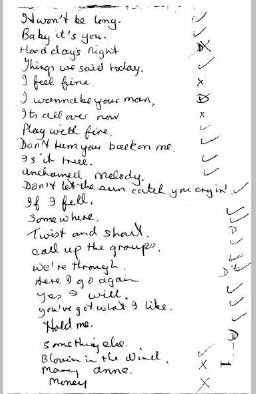 It won't be long. ✓
Baby it's you. ✓
Hard days night
Things we said today. ✓
I feel fine x
I wannabe your man.
Its all over now x
Play with fire. ✓
Don't turn your back on me. ✓
Is it true. ✓
unchained melody. ✓
Don't let the sun catch you cryin' ✓
If I fell. ✓
Somewhere. ✓
Twist and shout.
call up the groups.
we're through.
Here I go again
Yes I will. ✓
you've got what I like. ✓
Hold me.
Something else.
Blowin in the wind. ✓
Mary anne. x
Money x